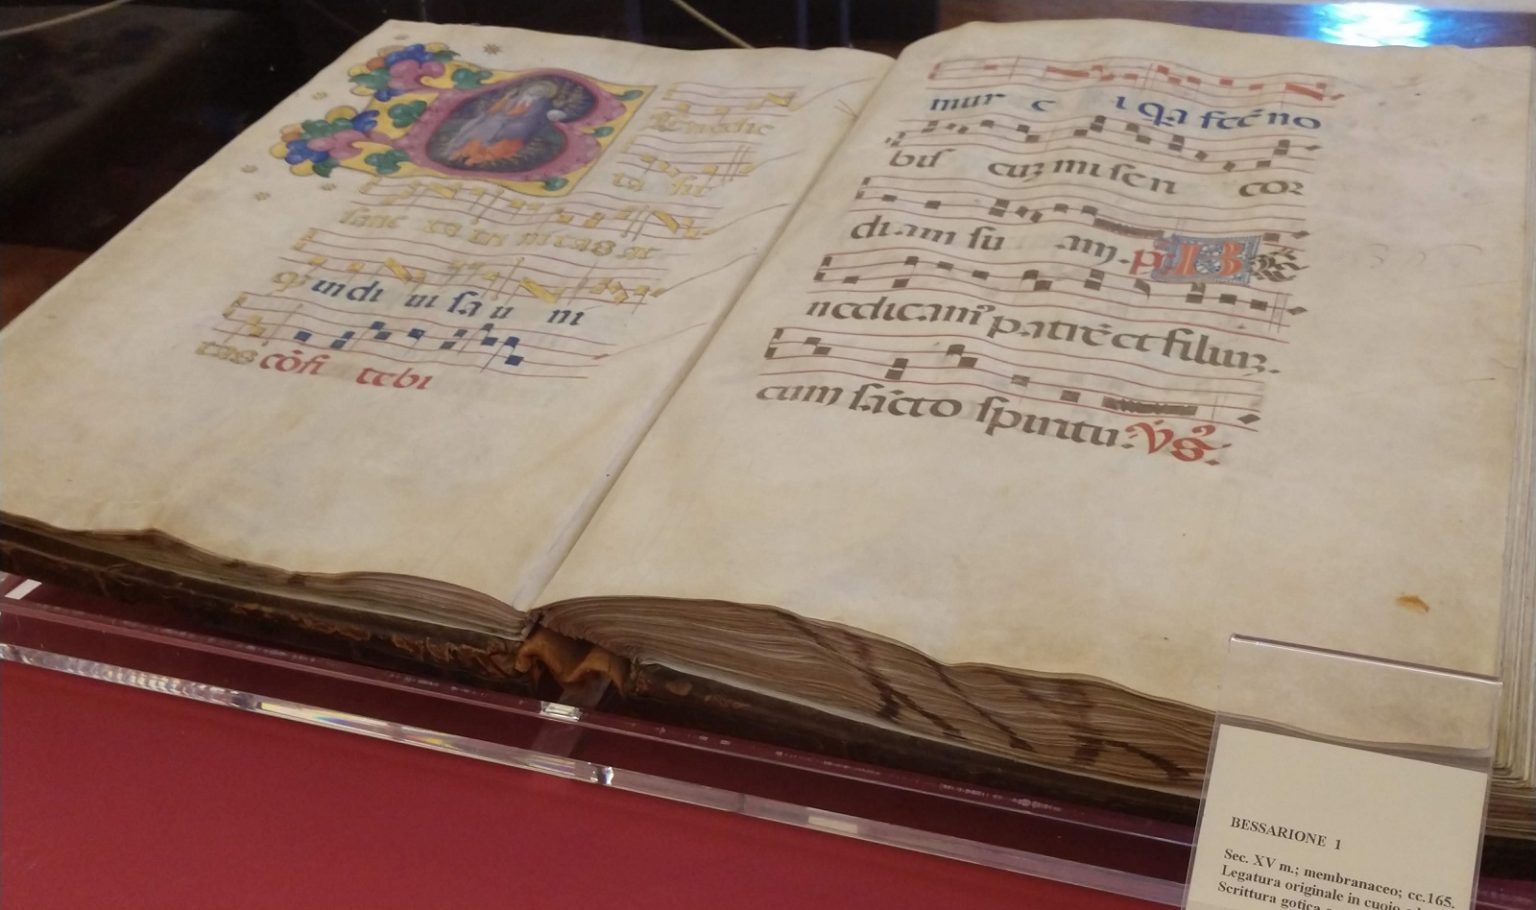 enedic
ta sit
sanc ta tri nitas at
q indi ui sa u ni
tas cōfi tebi
mur e i Qa fec̄ no
bis cuȝ mi sen cor
diam su am. p̄ B
nedicam⁹ patrē et filiuȝ.
cum sācto spiritu: V̄s̄.
BESSARIONE 1
Sec. XV m.; membranaceo; cc.165.
Legatura originale in cuoio
Scrittura gotica